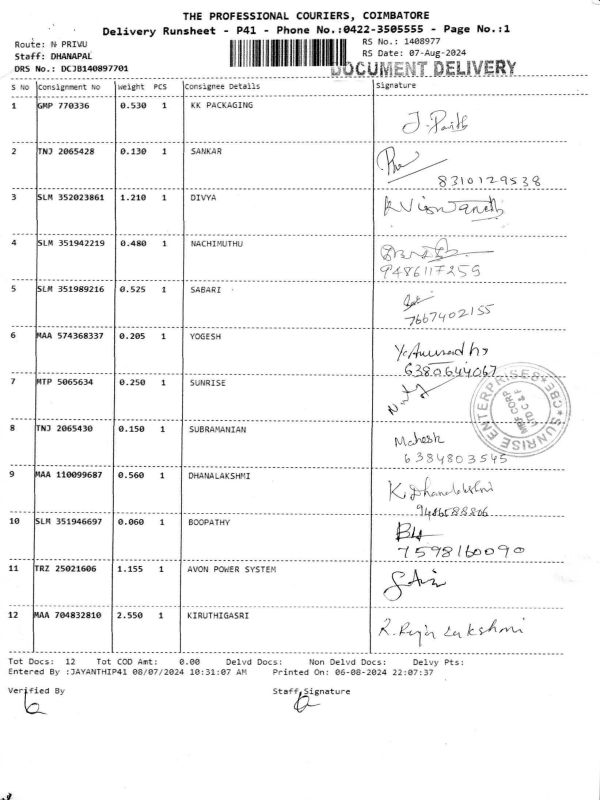 THE PROFESSIONAL COURIERS, COIMBATORE
Delivery Runsheet - P41 - Phone No.:0422-3505555 - Page No.:1
Route: N PRIVU
RS No.: 1408977
Staff: DHANAPAL
RS Date: 07-Aug-2024
DRS No.: DCJB140897701
DOCUMENT DELIVERY
S No Consignment No Weight PCS Consignee Details Signature
1 GMP 770336 0.530 1 KK PACKAGING
2 TNJ 2065428 0.130 1 SANKAR
8310129538
3 SLM 352023861 1.210 1 DIVYA
4 SLM 351942219 0.480 1 NACHIMUTHU
9486117259
5 SLM 351989216 0.525 1 SABARI
7667402155
6 MAA 574368337 0.205 1 YOGESH
Y. Anuradha
6380644067
7 MTP 5065634 0.250 1 SUNRISE
SUNRISE ENTERPRISES CBE
MRF CORP LTD C & F
8 TNJ 2065430 0.150 1 SUBRAMANIAN
Mahesh
6384803545
9 MAA 110099687 0.560 1 DHANALAKSHMI
K. Dhanalakshmi
9486588806
10 SLM 351946697 0.060 1 BOOPATHY
7598160090
11 TRZ 25021606 1.155 1 AVON POWER SYSTEM
12 MAA 704832810 2.550 1 KIRUTHIGASRI
R. Raja Lakshmi
Tot Docs: 12 Tot COD Amt: 0.00 Delvd Docs: Non Delvd Docs: Delvy Pts:
Entered By :JAYANTHIP41 08/07/2024 10:31:07 AM Printed On: 06-08-2024 22:07:37
Verified By Staff Signature